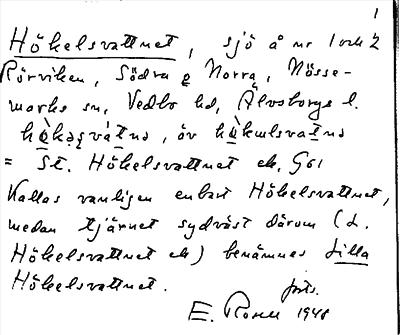 1
Hökelsvattnet, sjö å nr 1 och 2
Rörviken, Södra o Norra, Nösse-
marks sn, Vedbo hd, Älvsborgs l.
= St. Hökelsvattnet ek, G61
Kallas vanligen enbart Hökelsvattnet,
medan tjärnet sydväst därom (L.
Hökelsvattnet ek) benämnes Lilla
Hökelsvattnet.
forts.
E. 1948